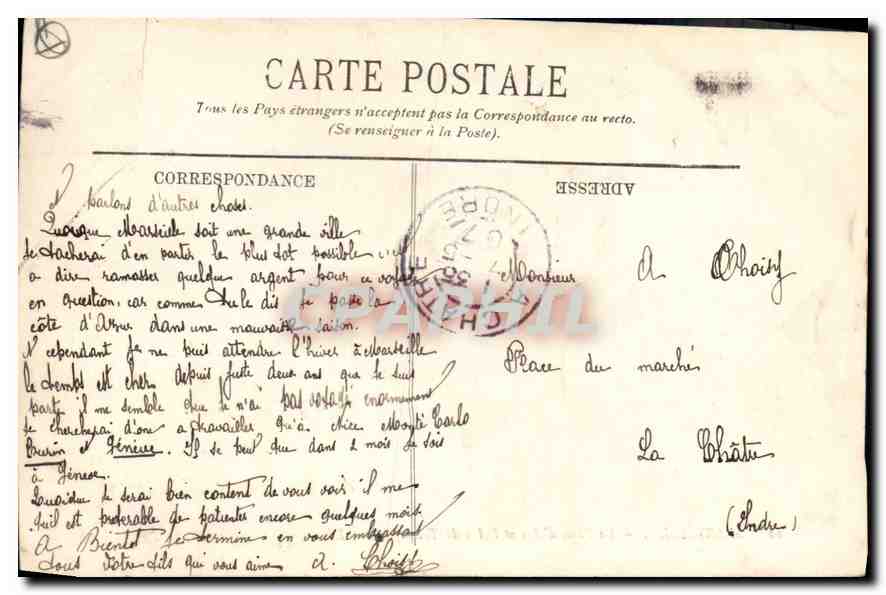 CARTE POSTALE
Tous les Pays étrangers n'acceptent pas la Correspondance au recto.
(Se renseigner à la Poste).
CORRESPONDANCE
ADRESSE
parlons d'autres choses.
Quoique Marseille soit une grande ville
je tacherai d'en partir le plus tot possible c'est
a dire ramasser quelque argent pour ce voyage
en question, car comme tu le dis je passe la
côte d'Azur dans une mauvaise saison.
cependant je ne puis attendre l'hiver à Marseille
le temps est cher depuis juste deux ans que je suis
parti il me semble que je n'ai pas voyagé enormement
je chercherai d'one a travailler qu'à Nice Monté Carlo
Turin et Génève. Il se peut que dans 2 mois je sois
à Génese.
Quoique je serai bien content de vous voir il me
quil est préferable de patienter encore quelques mois.
A Bientot je termine en vous embrassant
tous votre fils qui vous aime A. Choisy
Monsieur A Choisy
Place du marché
La Châtre
(Indre)
LA CHATRE
INDRE
CPAPHIL